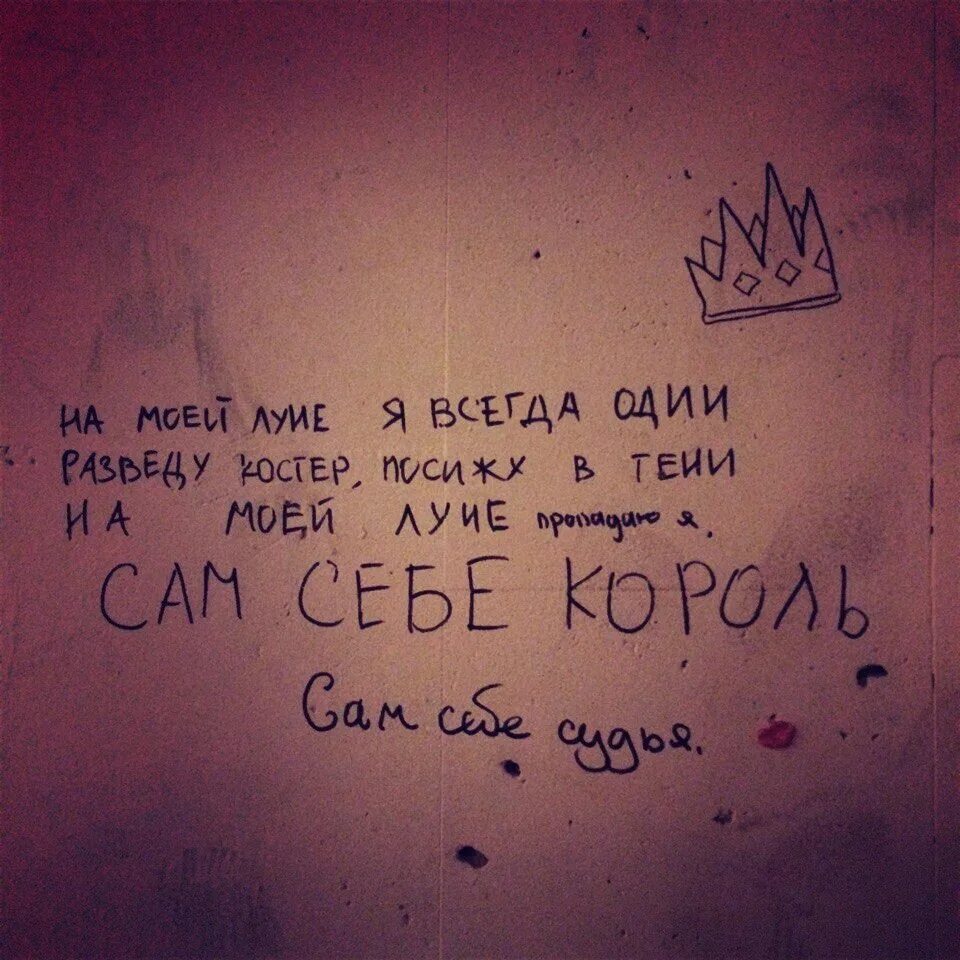 НА МОЕЙ ЛУНЕ Я ВСЕГДА ОДИН
РАЗВЕДУ КОСТЕР, ПОСИЖУ В ТЕНИ
НА МОЕЙ ЛУНЕ пропадаю я.
САМ СЕБЕ КОРОЛЬ
Сам себе судья.